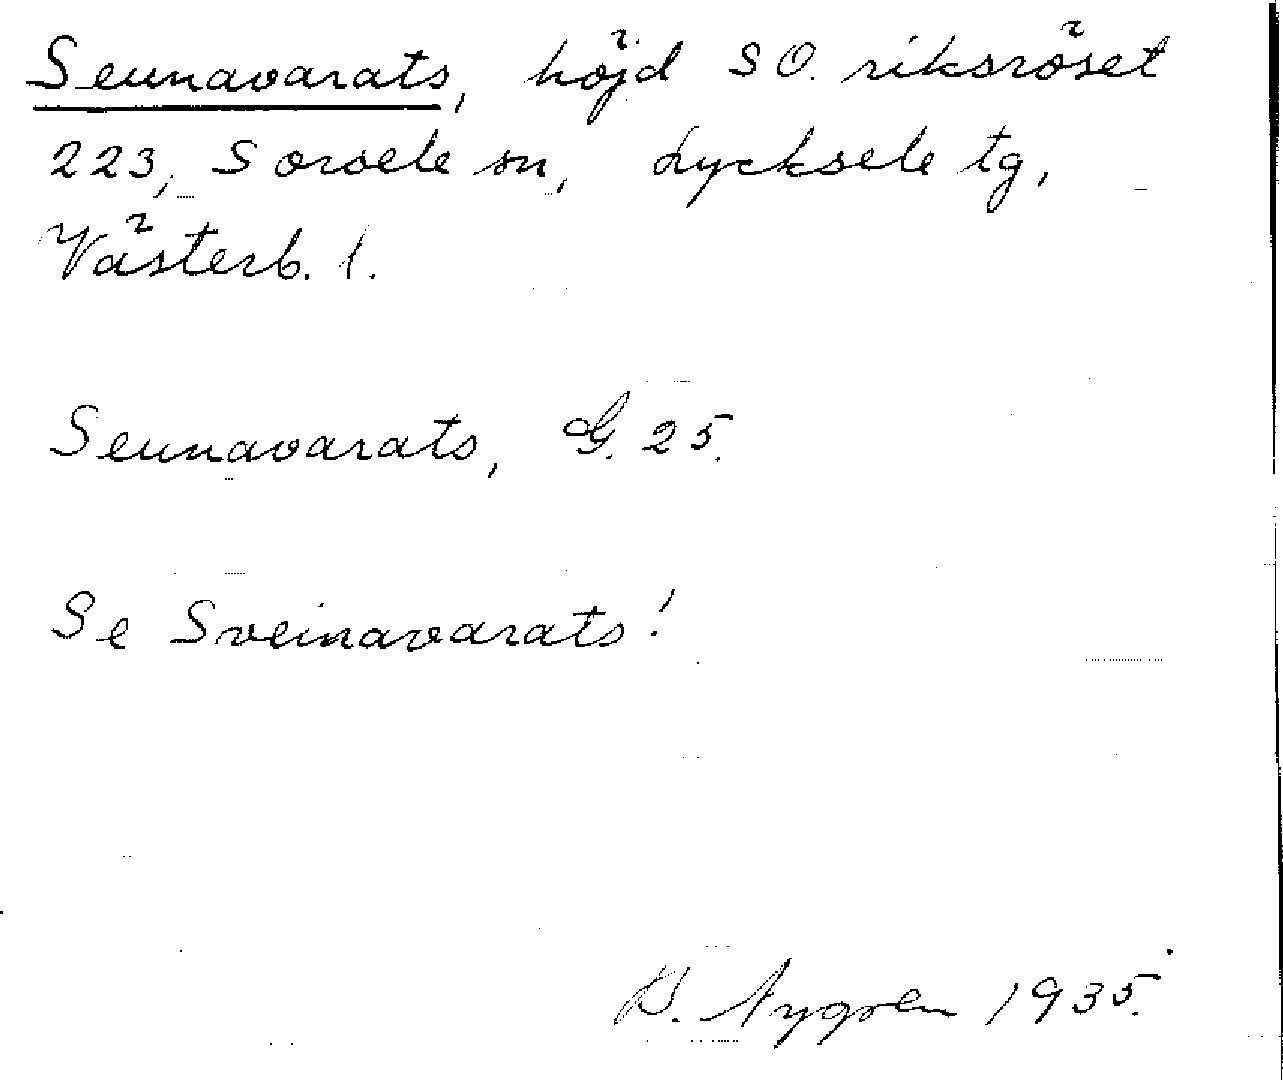 Seunavarats, höjd SO. riksröset
223, Sorsele sn, Lycksele tg,
Västerb. l.
Seunavarats, G. 25.
Se Sveinavarats!
Nygren 1935.